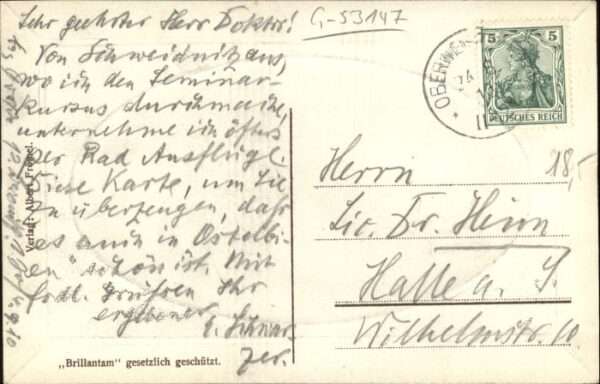 Sehr geehrter Herr Doktor!
Von Schweidnitz aus,
wo ich den Seminar-
kursus durchmache,
unternehme ich öfters
per Rad Ausflüge.
Diese Karte, um Sie
zu überzeugen, daß
es auch in „Ostelbi-
en" schön ist. Mit
frdl. Grüßen Ihr
ergebener
E. Schwar
zer.
G-53147
OBERWE
5 5
DEUTSCHES REICH
Herrn
Lic. Dr. Heim
Halle a. S.
Wilhelmstr. 10
18,-
Verlag: Albert Fröbel.
„Brillantam" gesetzlich geschützt.